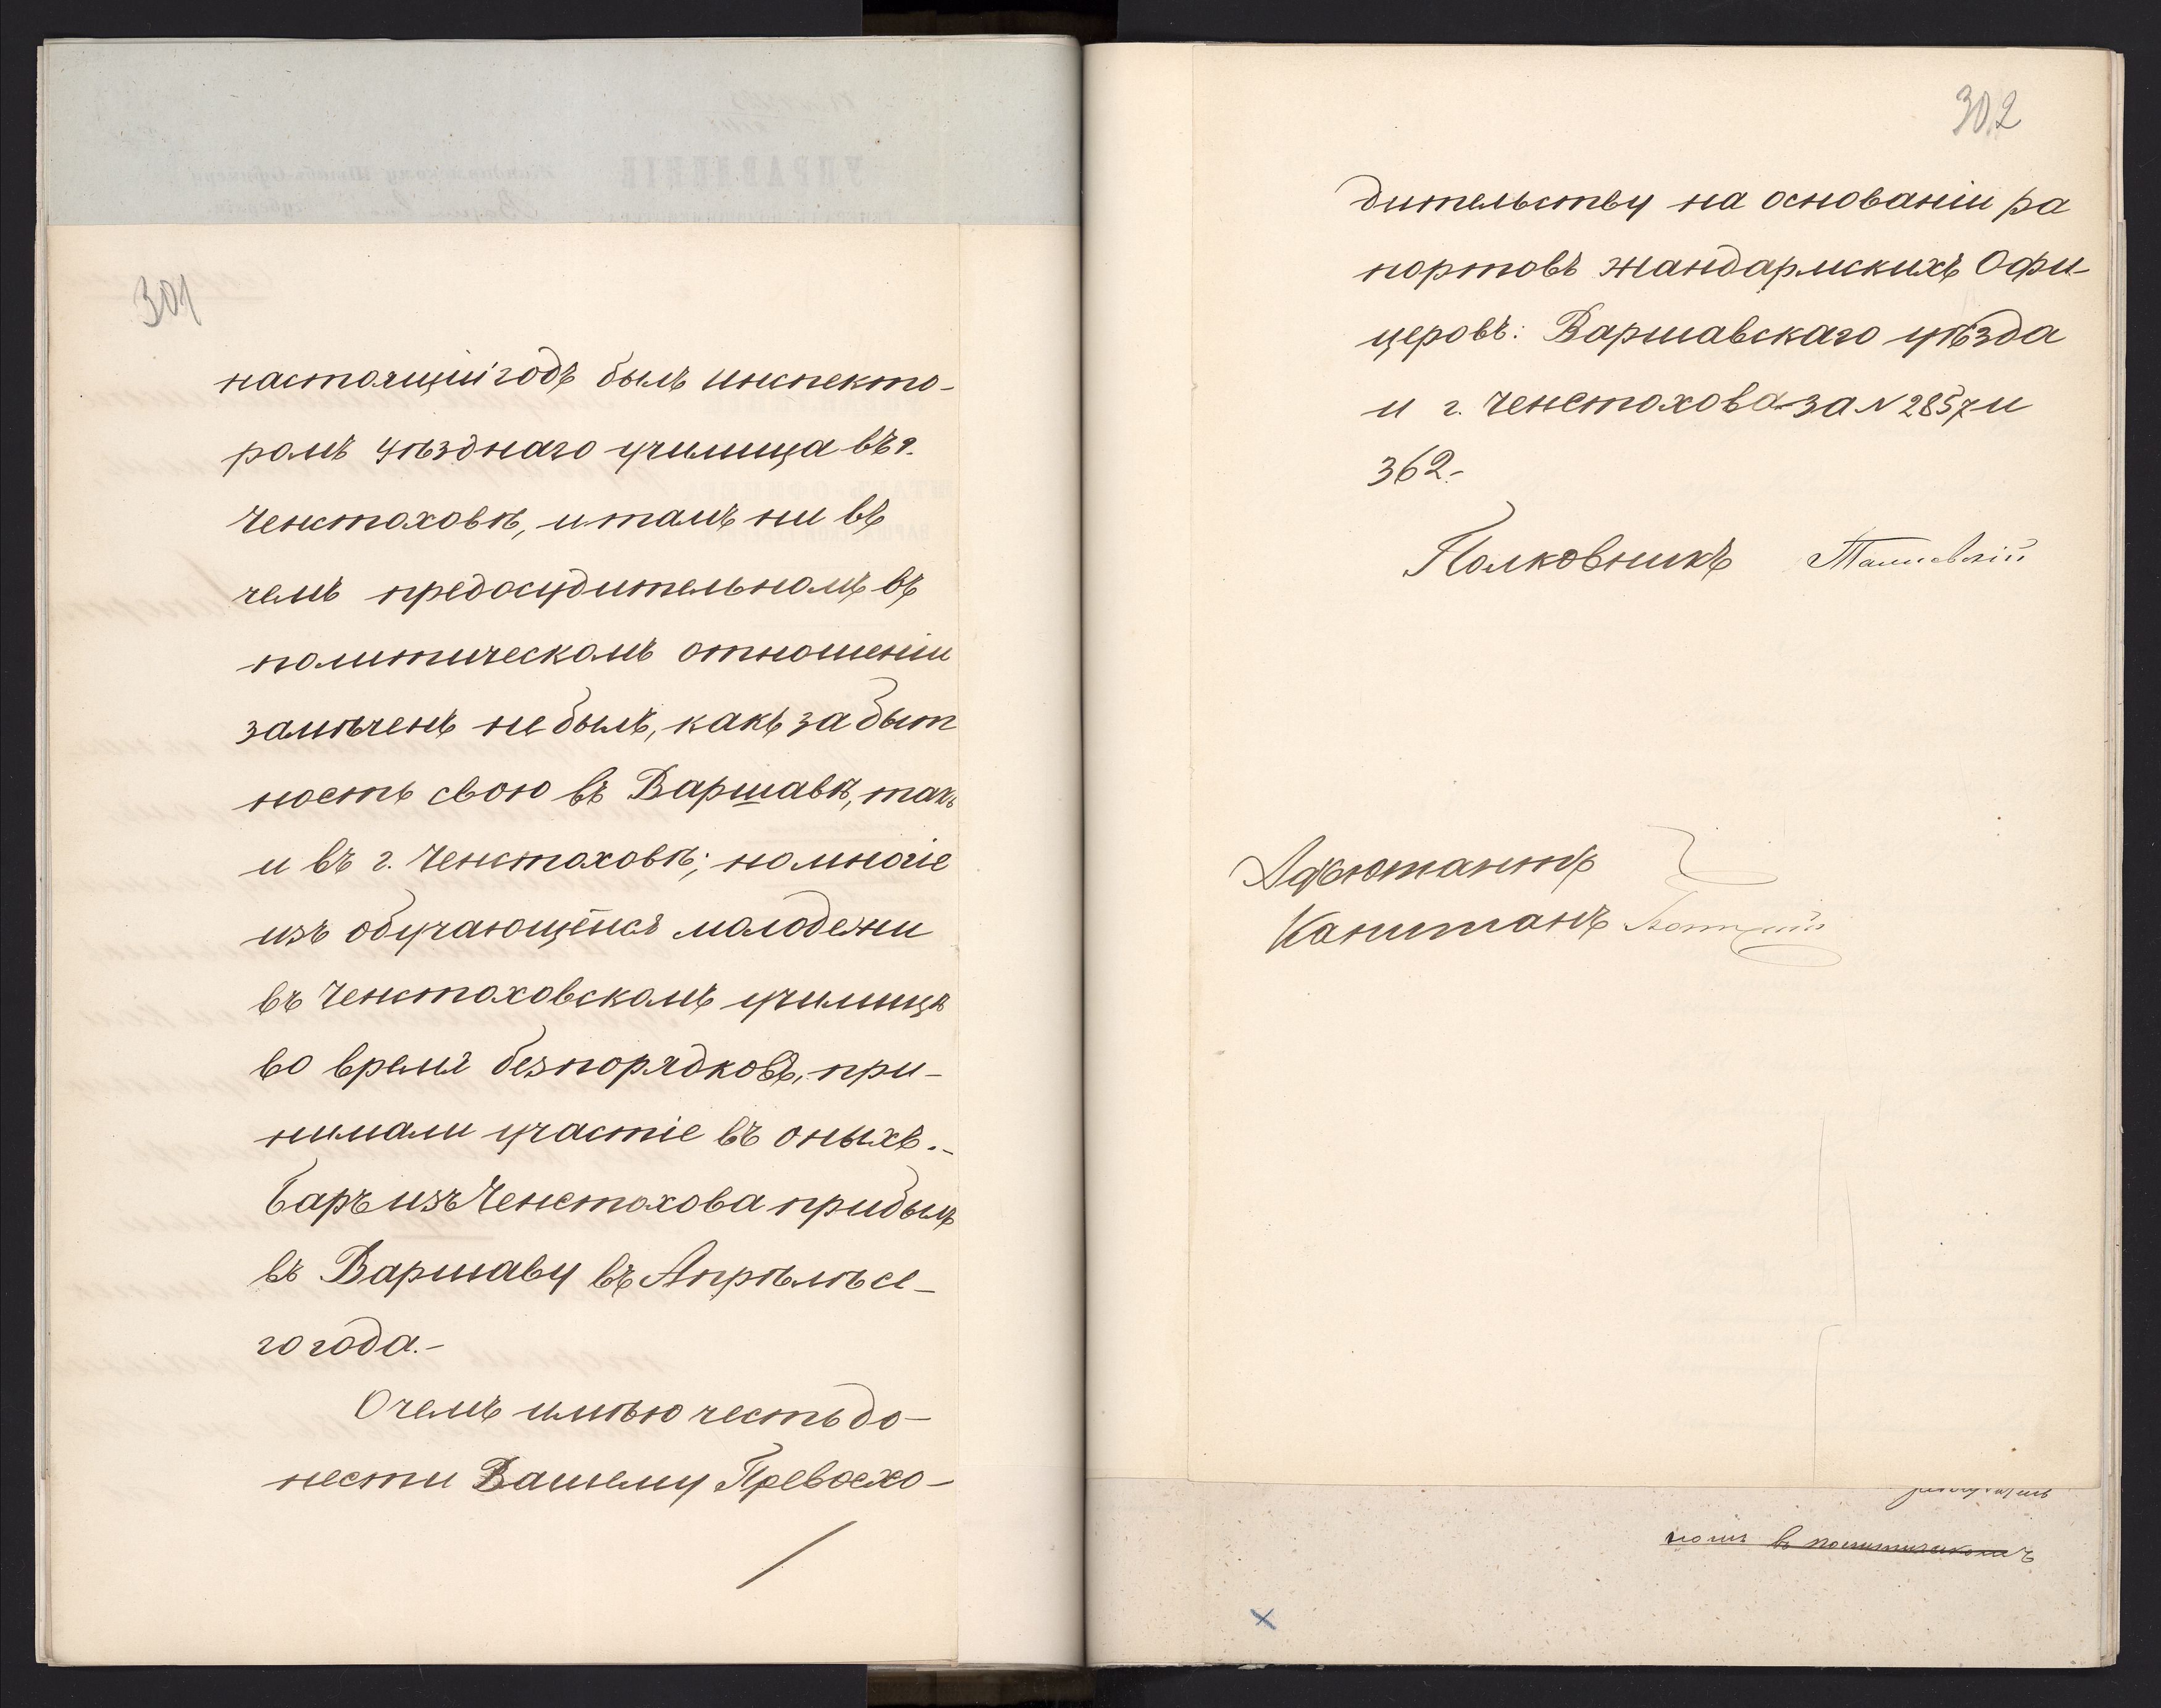 301
настоящій годъ былъ инспекто-
ромъ уѣзднаго училища въ г.
Ченстоховѣ, и тамъ ни въ
чемъ предосудительномъ въ
политическомъ отношеніи
замѣченъ не былъ, какъ за быт
ность свою въ Варшавѣ, такъ
и въ г. Ченстоховѣ; но многіе
изъ обучающейся молодежи
въ Ченстоховскомъ училищѣ
во время безпорядковъ, при-
нимали участіе въ оныхъ.-
Баръ изъ Ченстохова прибылъ
въ Варшаву въ Апрѣлѣ се-
го года.-
О чемъ имѣю честь до-
нести Вашему Превосхо-
302
дительству на основаніи ра
портовъ жандармскихъ Офи-
церовъ: Варшавскаго уѣзда
и г. Ченстохова за № 2857 и
362.-
Полковникъ
Адъютантъ
Капитанъ
номъ въ политическомъ